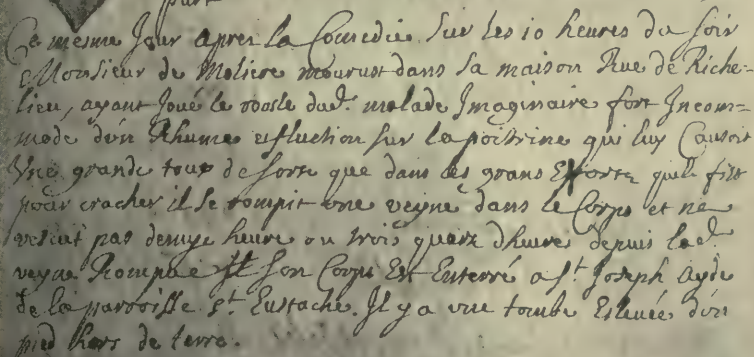 part
Ce mesme Jour apres la Comedie Sur les 10 heures du soir
Monsieur de Moliere mourust dans Sa maison Rue de Riche-
lieu, ayant Joué le roosle dud. malade Imaginaire fort Incom-
modé d'un Rhume et fluction Sur la poitrine qui luy Causoit
Une grande toux de sorte que dans les grans Efforts quil fist
pour cracher il Se rompit une veyne dans le Corps et ne
vescut pas demye heure ou trois quarz d'heure depuis lad.
veyne Rompue Son Corps Est Enterré a St. Joseph Ayde
de la parroisse St. Eustache. Il y a une tombe Eslevée d'un
pied hors de terre.